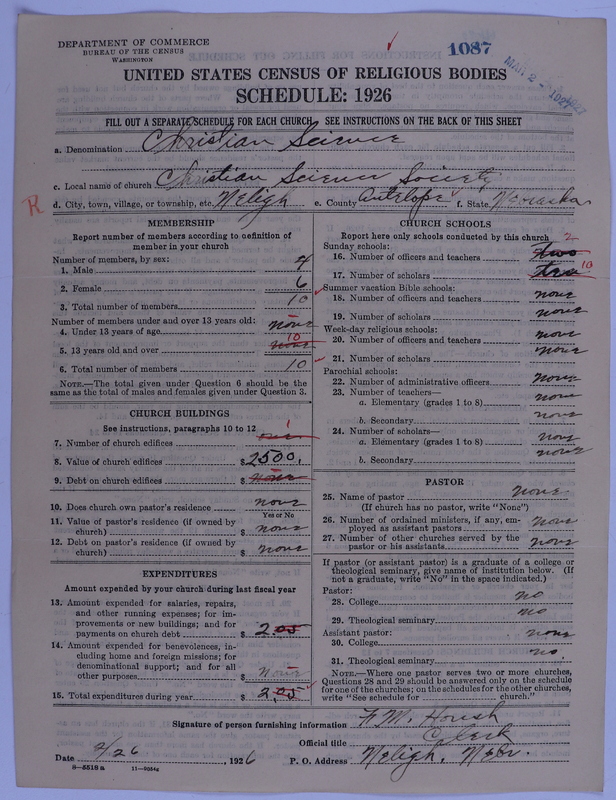 DEPARTMENT OF COMMERCE
BUREAU OF THE CENSUS
WASHINGTON
1087
MAR 2 - 1927
UNITED STATES CENSUS OF RELIGIOUS BODIES
SCHEDULE: 1926
FILL OUT A SEPARATE SCHEDULE FOR EACH CHURCH. SEE INSTRUCTIONS ON THE BACK OF THIS SHEET
a. Denomination Christian Science
c. Local name of church Christian Science Society
R
d. City, town, village, or township, etc. Neligh e. County Antelope f. State Nebraska
MEMBERSHIP
Report number of members according to definition of
member in your church
Number of members, by sex:
1. Male 4
2. Female 6
3. Total number of members 10
Number of members under and over 13 years old:
4. Under 13 years of age none
5. 13 years old and over none 10
6. Total number of members 10
NOTE.—The total given under Question 6 should be
same as the total of males and females given under Question 3.
CHURCH BUILDINGS
See instructions, paragraphs 10 to 12
7. Number of church edifices 1
8. Value of church edifices $2500.
9. Debt on church edifices $ none
10. Does church own pastor's residence none
Yes or No
11. Value of pastor's residence (if owned by
church) $ none
12. Debt on pastor's residence (if owned by
church) $ none
EXPENDITURES
Amount expended by your church during last fiscal year
13. Amount expended for salaries, repairs,
and other running expenses; for im-
provements or new buildings; and for
payments on church debt $ 2.05
14. Amount expended for benevolences, in-
cluding home and foreign missions; for
denominational support; and for all
other purposes $ None
15. Total expenditures during year $ 2.05
CHURCH SCHOOLS
Report here only schools conducted by this church
Sunday schools:
16. Number of officers and teachers two 2
17. Number of scholars ten 10
Summer vacation Bible schools:
18. Number of officers and teachers none
19. Number of scholars none
Week-day religious schools:
20. Number of officers and teachers none
21. Number of scholars none
Parochial schools:
22. Number of administrative officers none
23. Number of teachers—
a. Elementary (grades 1 to 8) none
b. Secondary none
24. Number of scholars—
a. Elementary (grades 1 to 8) none
b. Secondary none
PASTOR
25. Name of pastor none
(If church has no pastor, write "None")
26. Number of ordained ministers, if any, em-
ployed as assistant pastors none
27. Number of other churches served by the
pastor or his assistants none
If pastor (or assistant pastor) is a graduate of a college or
theological seminary, give name of institution below. (If
not a graduate, write "No" in the space indicated.)
Pastor:
28. College no
29. Theological seminary no
Assistant pastor:
30. College none
31. Theological seminary no
NOTE.—Where one pastor serves two or more churches,
Questions 28 and 29 should be answered only on the schedule
for one of the churches; on the schedules for the other churches,
write "See schedule for church."
Signature of person furnishing information F. W. Housh
Official title Clerk
Date 2/26, 1926 P. O. Address Neligh, Nebr.
8—5518 a 11—9054a